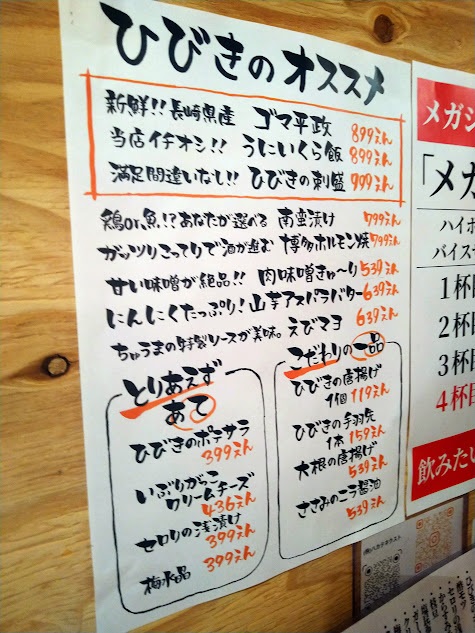 ひびきのオススメ
新鮮!! 長崎県産 ゴマ平政 899えん
当店イチオシ!! うにいくら飯 899えん
満足間違いなし!! ひびきの刺盛 999えん
鶏or魚!?あなたが選べる 南蛮漬け 799えん
ガッツリこってりで酒が進む 博多ホルモン焼 749えん
甘い味噌が絶品!! 肉味噌きゅ〜り 539えん
にんにくたっぷり! 山芋アスパラバター 639えん
ちゅうまの特製ソースが美味。えびマヨ 639えん
とりあえず
あて
ひびきのポテサラ
399えん
いぶりがっこ
クリームチーズ
436えん
セロリの浅漬け
399えん
梅水晶 399えん
こだわりの一品
ひびきの唐揚げ
1個 119えん
ひびきの手羽先
1本 159えん
大根の唐揚げ
539えん
ささみのニラ醤油
539えん
メガジ
「メガ
ハイボ
バイス
1杯目
2杯目
3杯目
4杯目
飲みたい